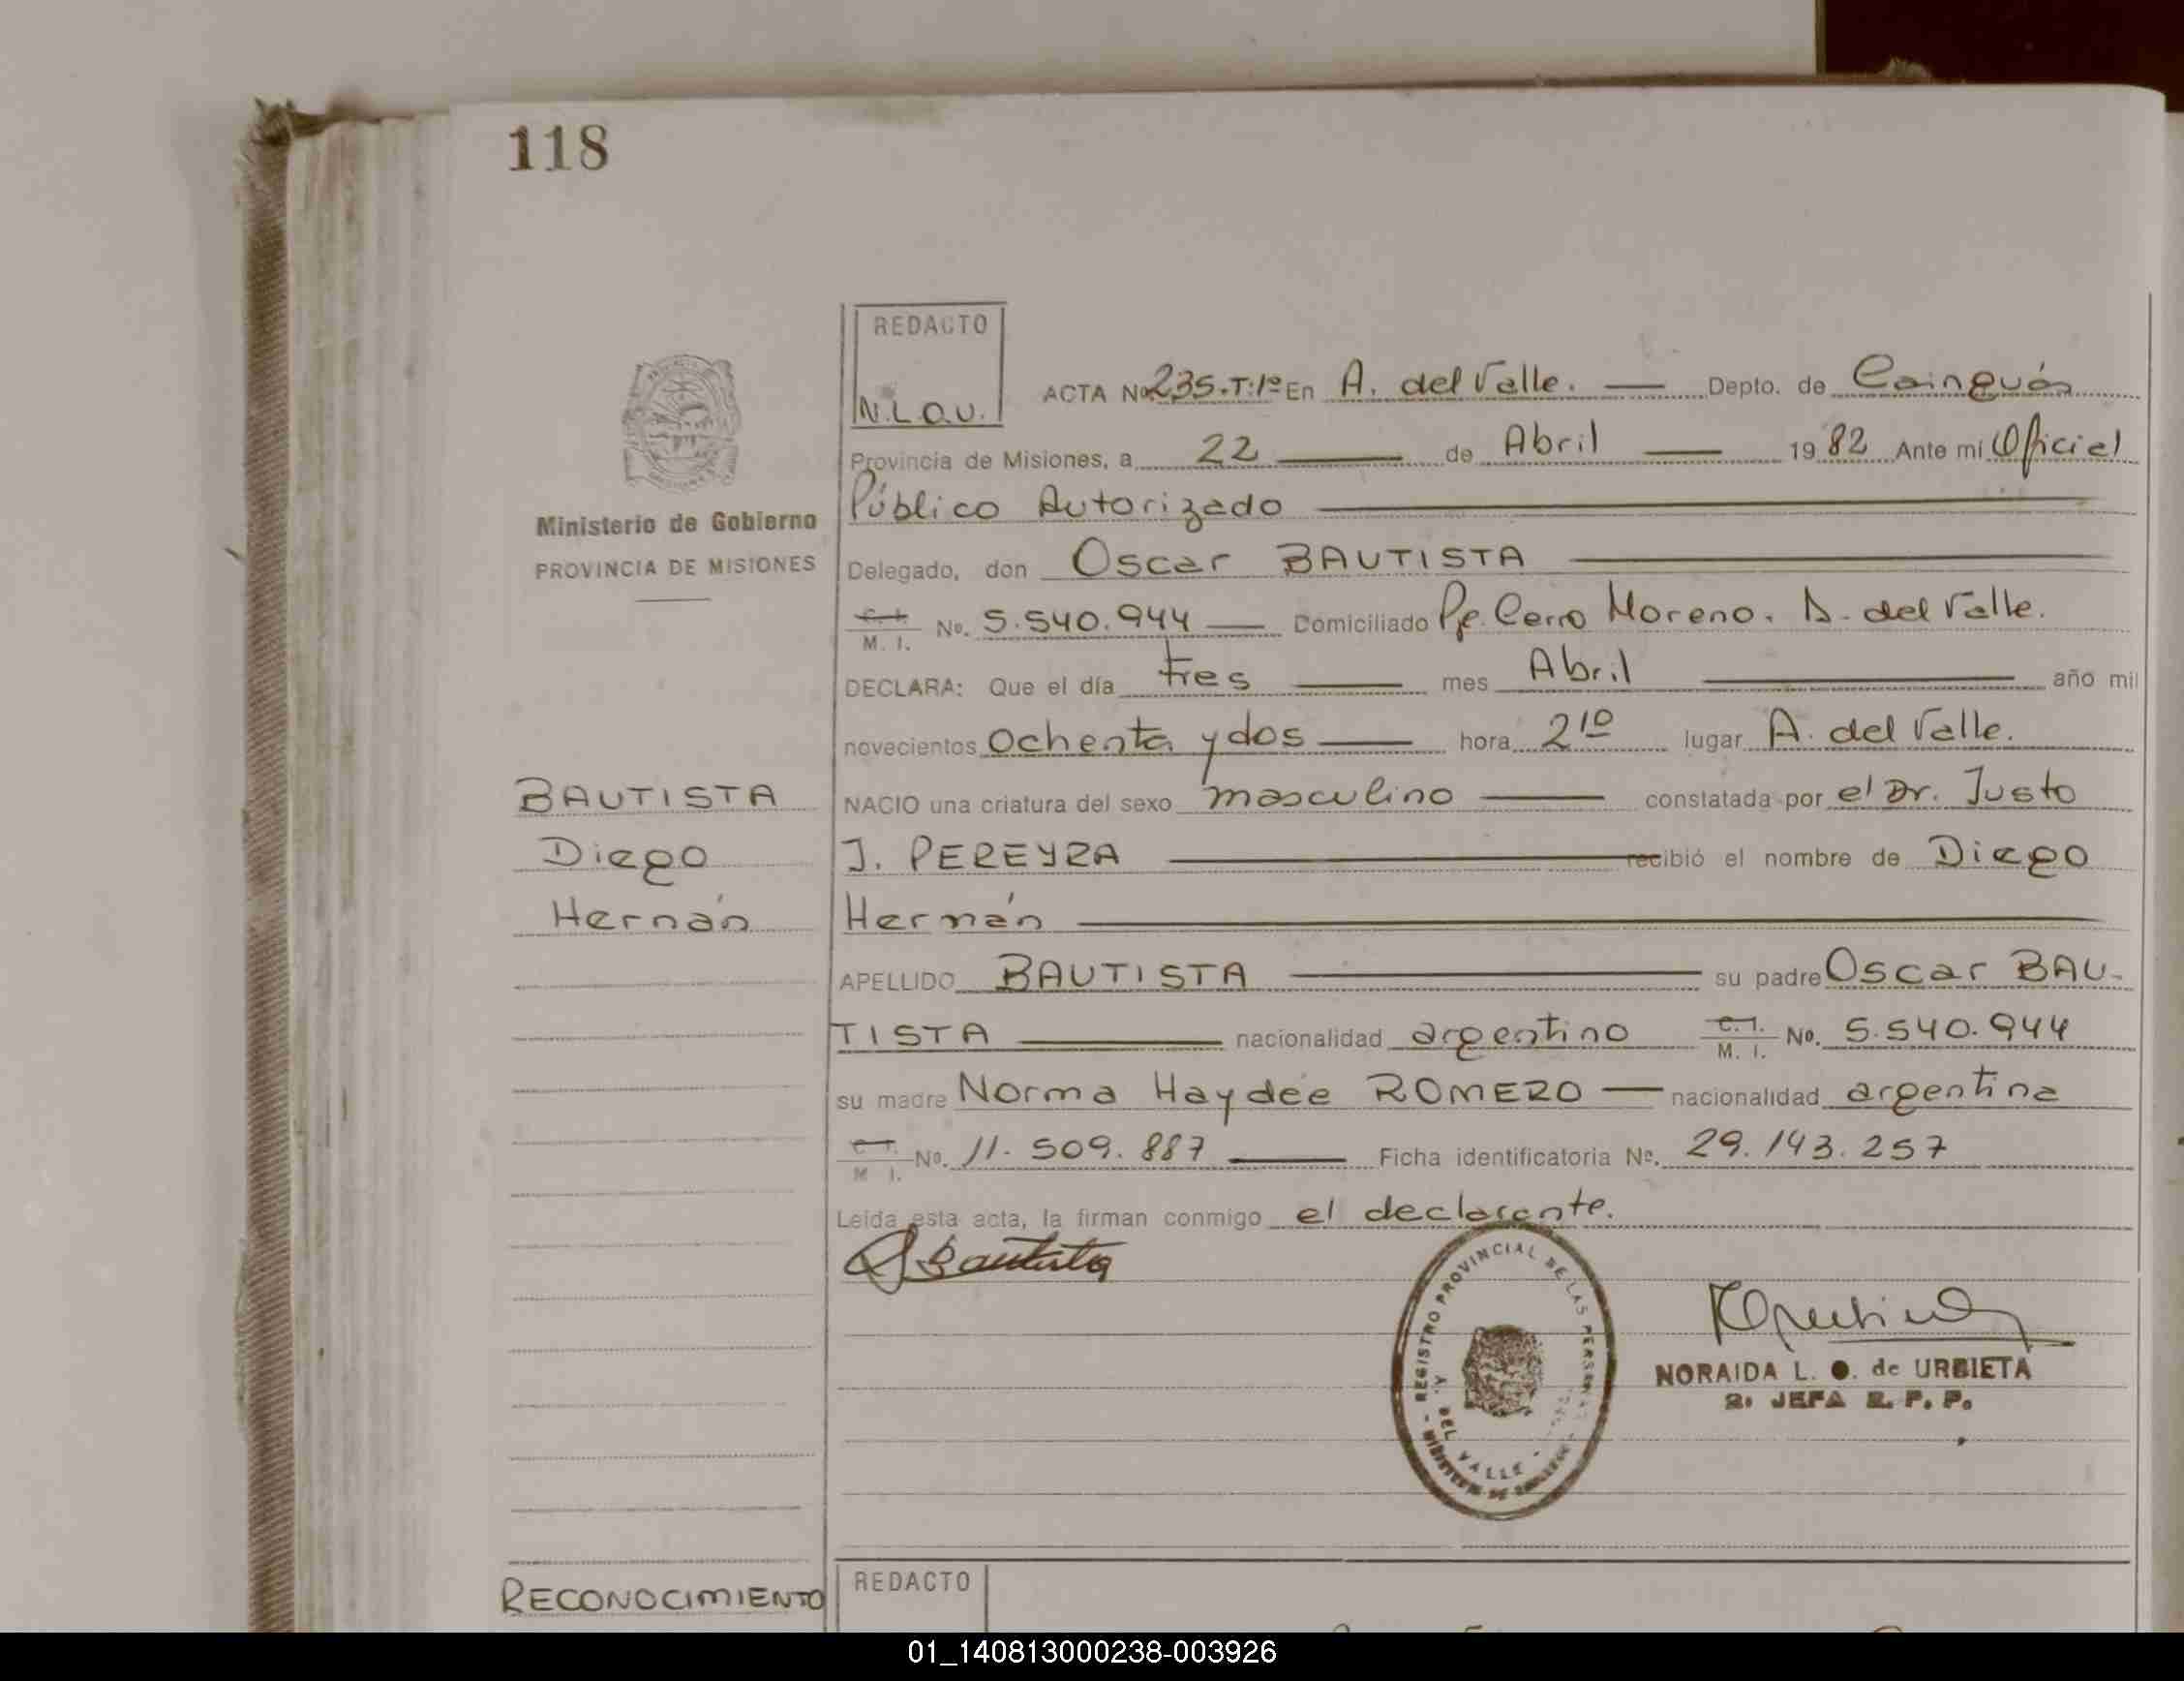 118
REDACTO
N.L.O.U.
ACTA No 235.T:1º En A. del Valle. Depto. de Cainguás
Provincia de Misiones, a 22 de Abril 1982 Ante mi Oficial
Público Autorizado
Ministerio de Gobierno
PROVINCIA DE MISIONES
Delegado, don Oscar BAUTISTA
C. I. M. I. No. 5.540.944 Domiciliado Pje. Cerro Moreno. A. del Valle.
DECLARA: Que el día tres mes Abril año mil
novecientos Ochenta y dos hora 2 10 lugar A. del Valle.
BAUTISTA
Diego
Hernán
NACIO una criatura del sexo masculino constatada por el Dr. Justo
J. PEREYRA recibió el nombre de Diego
Hernán
APELLIDO BAUTISTA su padre Oscar BAU-
TISTA nacionalidad argentino C. I. M. I. No. 5.540.944
su madre Norma Haydée ROMERO nacionalidad argentina
C. I. M I. No. 11.509.887 Ficha identificatoria No. 29.143.257
Leída esta acta, la firman conmigo el declarante.
Bautista
REGISTRO PROVINCIAL DE LAS PERSONAS
DEL VALLE
NORAIDA L. O. de URBIETA
2ª JEFA R. P. P.
RECONOCIMIENTO
REDACTO
01_140813000238-003926